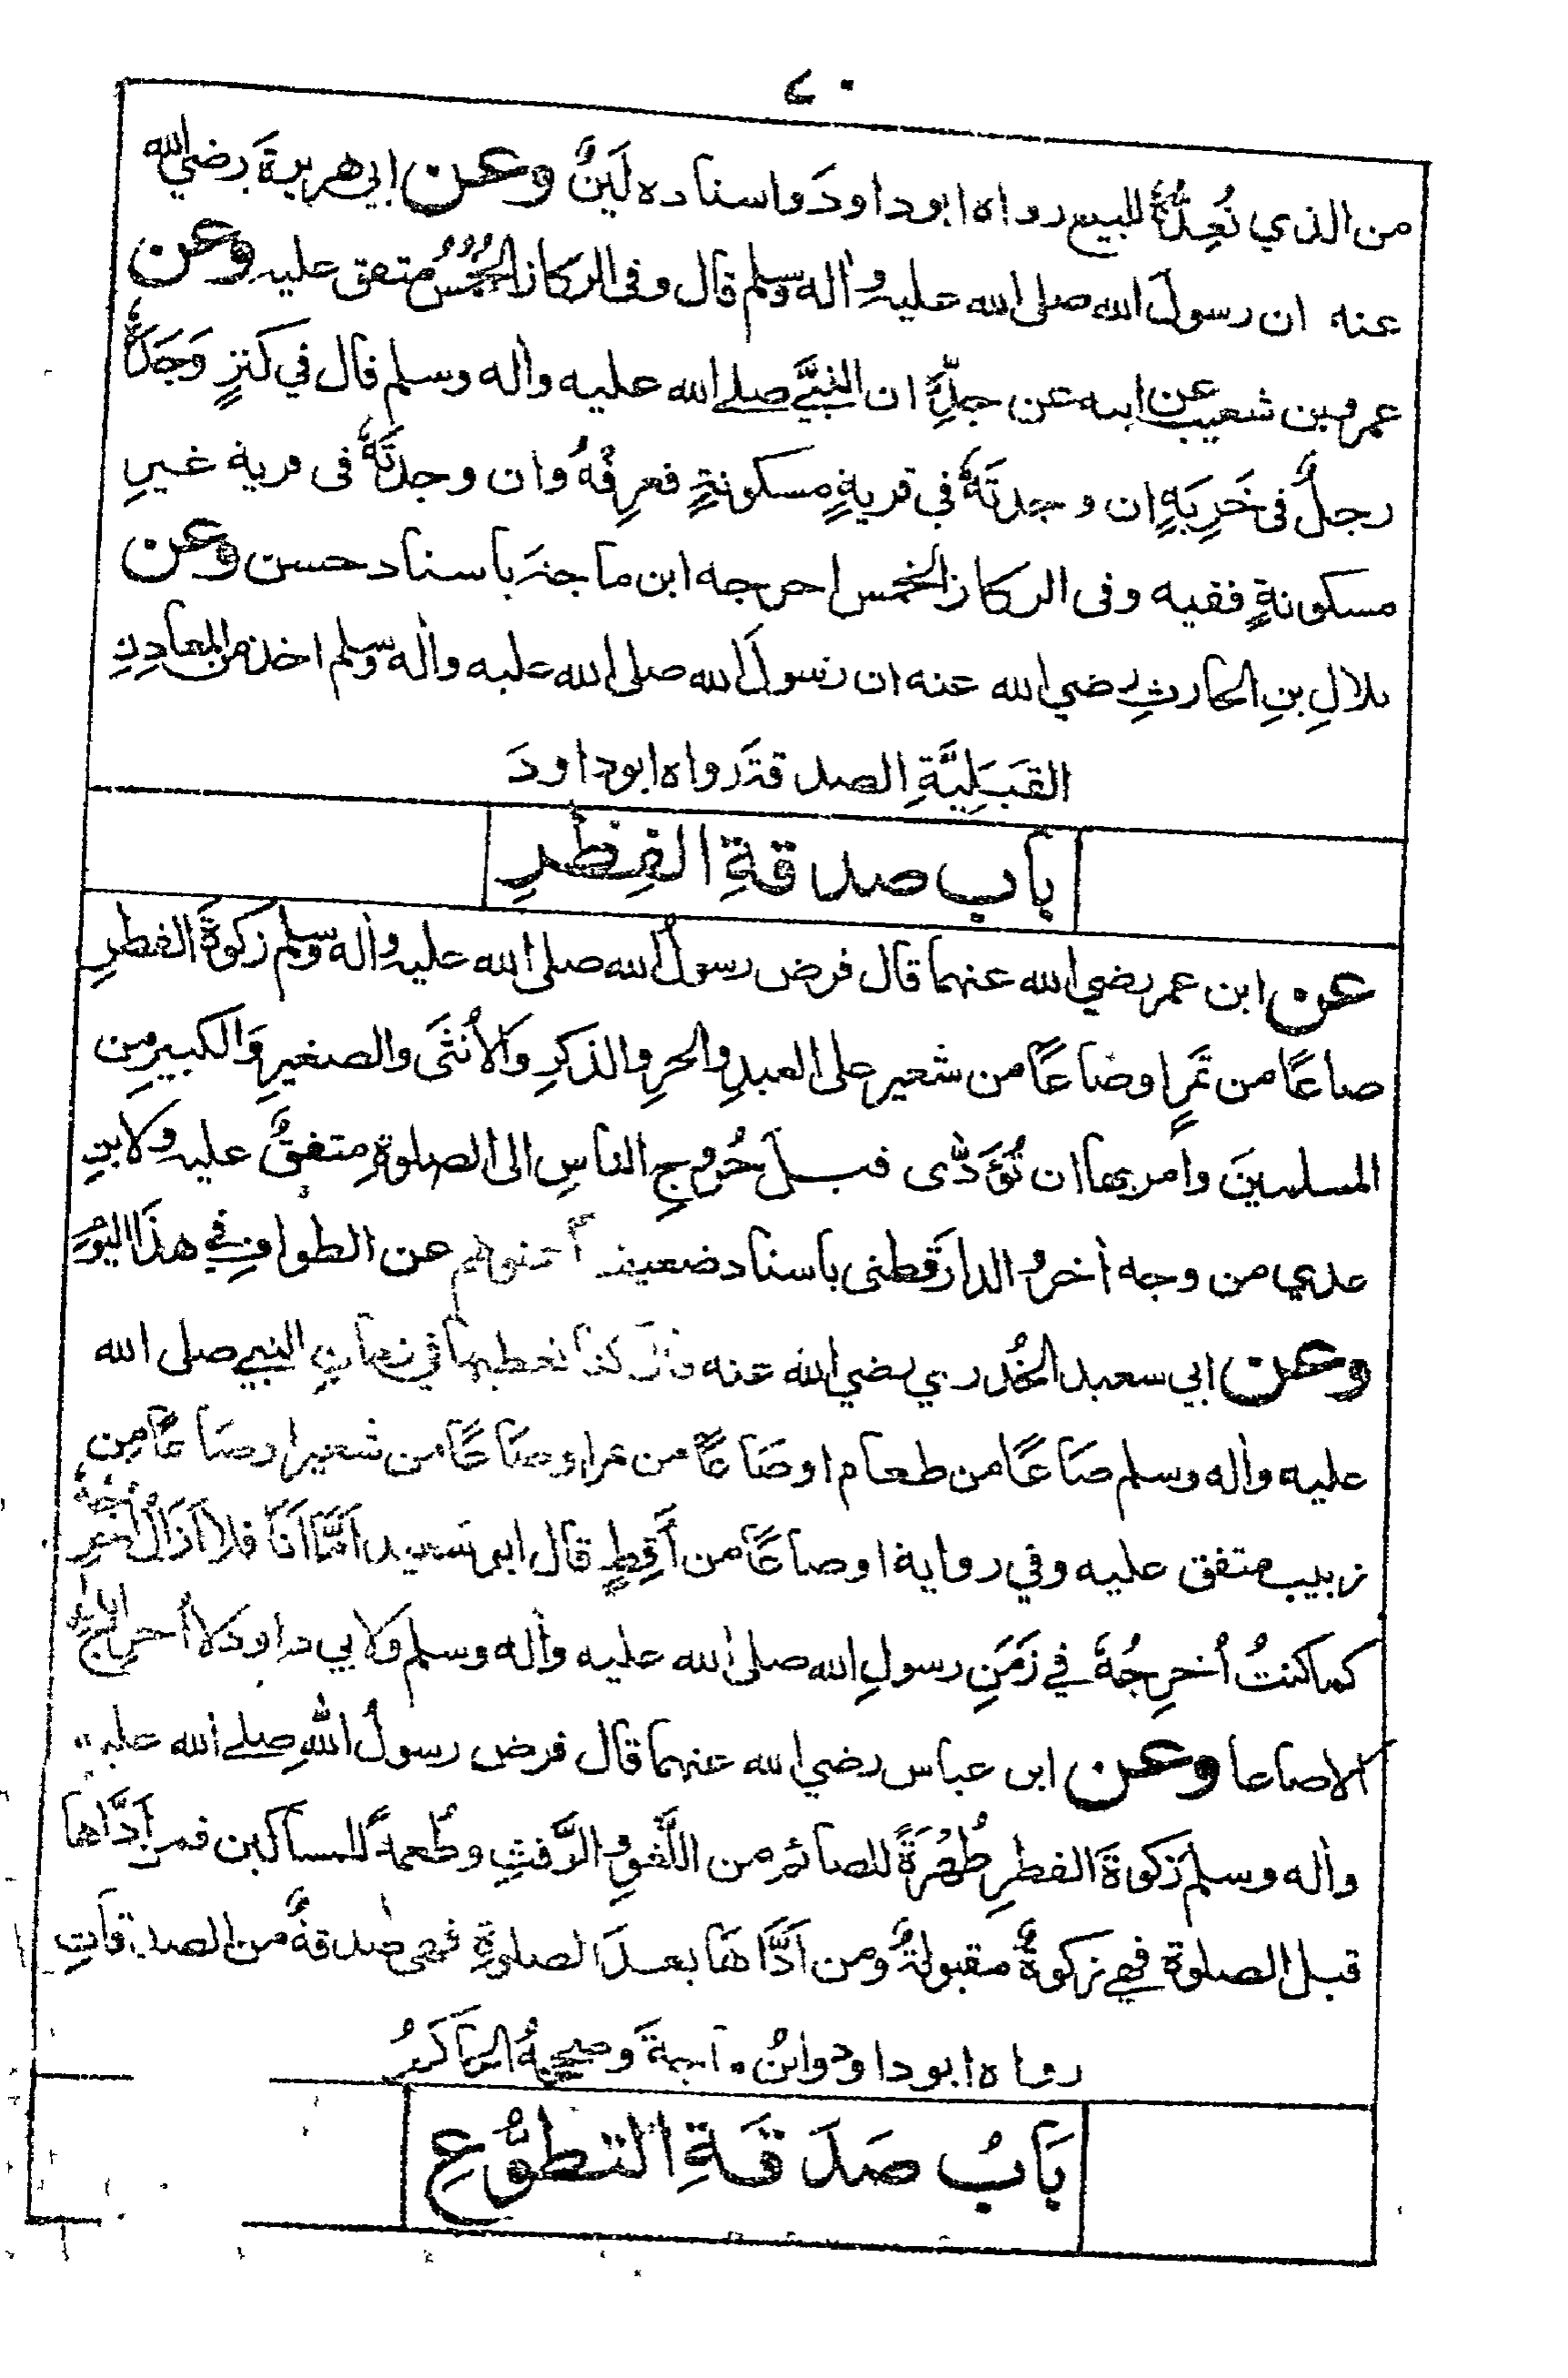 ٧٠
من الذي نُعِدُّهُ للبيع رواه ابو داودَ واسناده لَيِّنٌ وعن ابي هريرةَ رضي الله
عنه ان رسولَ الله صلى الله عليه واٰله وسلم قال وفى الركاز الخُمُسُ متفق عليه وعن
عمرو بن شعيب عن ابيه عن جدِّهِ ان النبيَّ صلے الله عليه واٰله وسلم قال في كَنزٍ وَجَدَهُ
رجلٌ فى خَرِبَةٍ ان وجدتَهُ في قريةٍ مسكونةٍ فعرِفْهُ وان وجدتَهُ فى قرية غيرِ
مسكونةٍ ففيه وفى الركاز الخمس اخرجه ابن ماجةَ باسناد حسن وعن
بلالِ بنِ الحارثِ رضي الله عنه ان رسولَ الله صلى الله عليه واٰله وسلم اخذ من المعادِنِ
القَبَلِيَّةِ الصدقةَ رواه ابو داودَ
باب صدقةِ الفِطْرِ
عن ابن عمر رضي الله عنهما قال فرض رسولُ الله صلى الله عليه واٰله وسلم زكوةَ الفطرِ
صاعًا من تَمرٍ او صاعًا من شعير على العبدِ والحرِ والذكرِ والأُنثَى والصغيرِ وَالكبيرِ مِن
المسلمينَ وأمر بها ان تُؤَدّٰى قبلَ خُروجِ الناسِ الى الصلوةِ متفقٌ عليه ولابنِ
عدي من وجه اٰخر والدارَقطنى باسناد ضعيف أغنوهم عن الطوافِ في هذَا اليَوْمِ
وعن ابي سعيد الخُدري رضي الله عنه قال كنا نعطيها في زمانِ النبيے صلى الله
عليه واٰله وسلم صَاعًا من طعام او صَاعًا من تمر او صَاعًا من شعير او صَاعًا مِن
زبيب متفق عليه وفي رواية او صاعًا من أَقِطٍ قال ابو سَعيد اَمَّا اَنَا فلا اَزَالُ اُخرِجُهُ
كما كنتُ اُخرِجُهُ في زَمَنِ رسولِ الله صلى الله عليه واٰله وسلم ولابي داود لا أُخرِجُ ابدًا
الا صاعا وعن ابن عباس رضي الله عنهما قال فرض رسولُ اللهِ صلے الله عليه
واٰله وسلم زكوةَ الفطرِ طُهْرَةً للصائمِ من اللَّغوِ والرَّفثِ وطُعمةً للمساكين فمن اَدَّاها
قبل الصلوة فهي زكوةٌ مقبولةٌ ومن اَدَّاهَا بعدَ الصلوةِ فهى صدقةٌ من الصدقاتِ
رواه ابو داود وابنُ ماجةَ وصححهُ الحاكمُ
بَابُ صَدَقَةِ التطوُّعِ